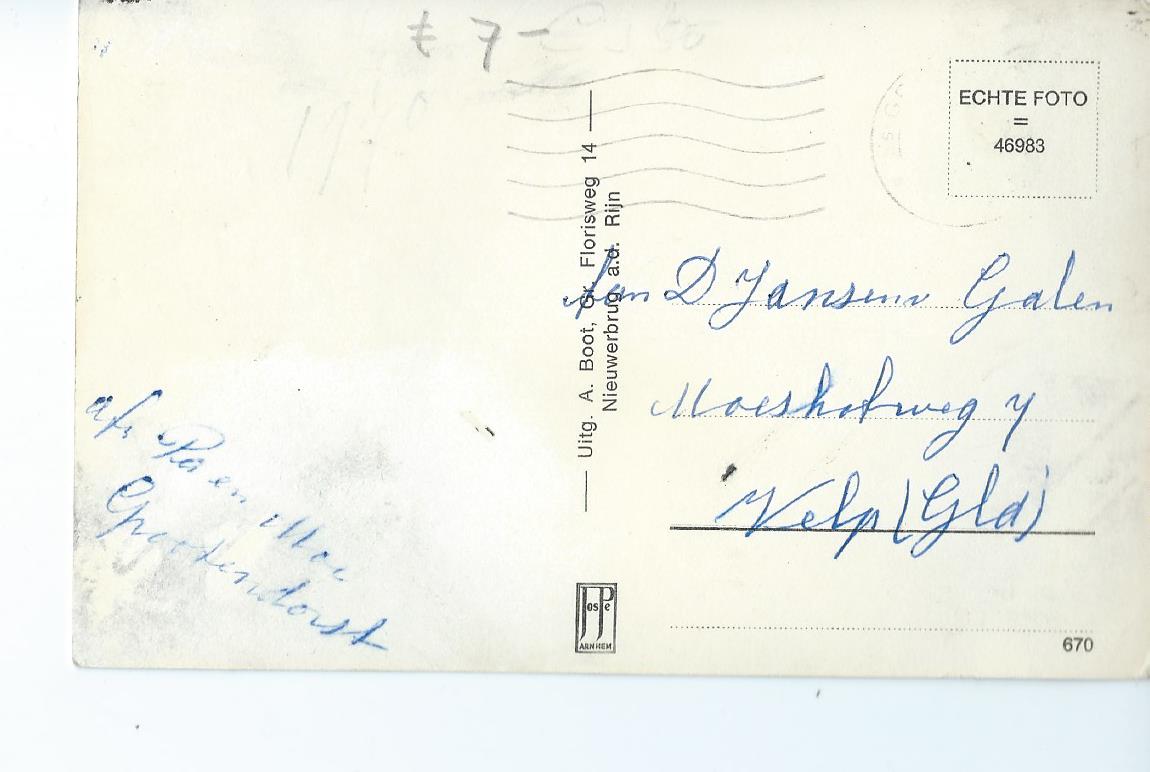 £ 7 –
ECHTE FOTO
=
46983
Uitg. A. Boot, Gr. Florisweg 14
Nieuwerbrug a.d. Rijn
Aan D Jansen v Galen
Moeshofweg 4
Velp (Gld)
afz Pa en Moe
Grootendorst
JosPe
ARNHEM
670